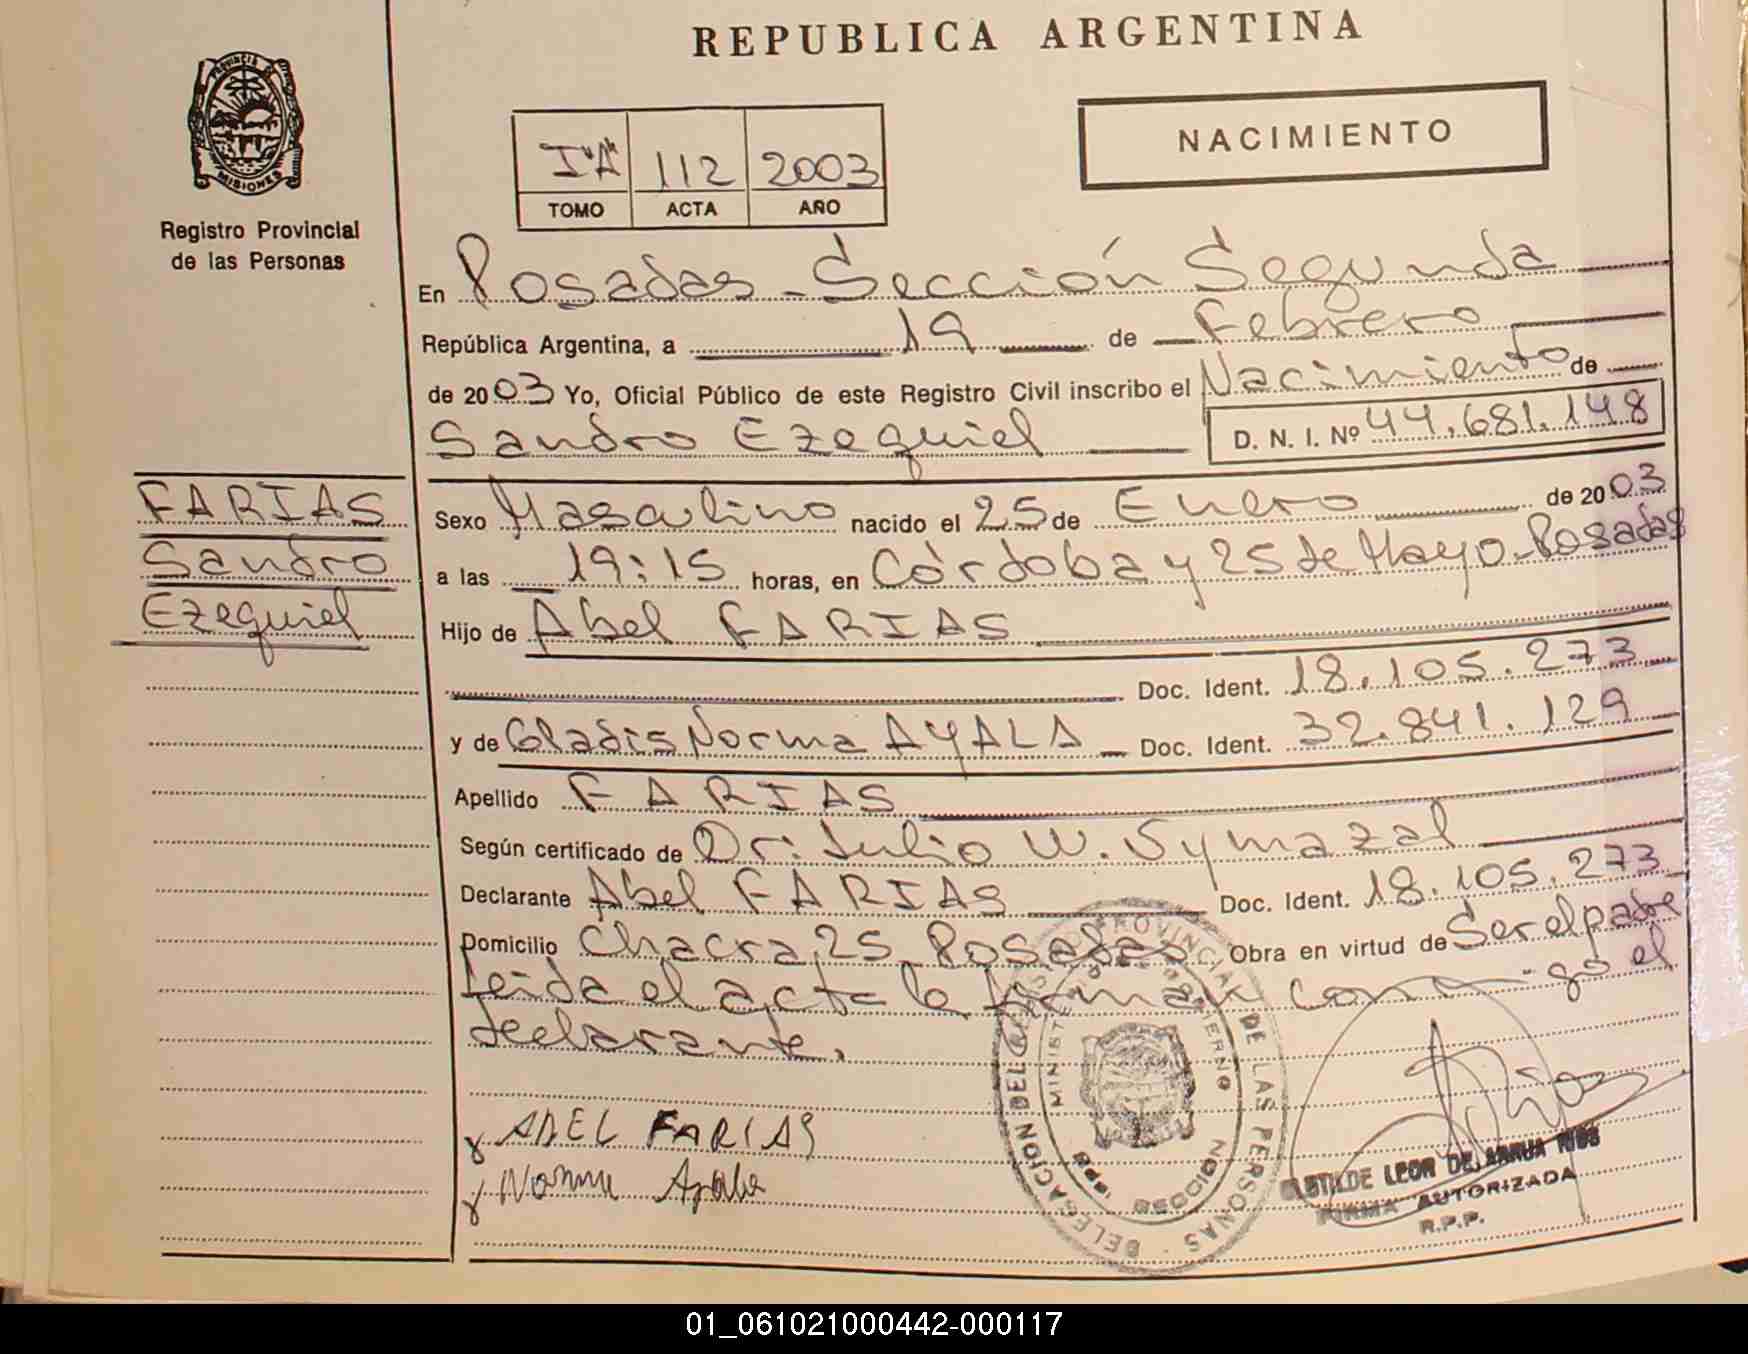 REPUBLICA ARGENTINA
PROVINCIA DE
MISIONES
Registro Provincial
de las Personas
NACIMIENTO
I"A" 112 2003
TOMO ACTA AÑO
En Posadas - Sección Segunda
República Argentina, a 19 de Febrero
de 2003 Yo, Oficial Público de este Registro Civil inscribo el Nacimiento de
Sandro Ezequiel D. N. I. Nº 44.681.148
FARIAS
Sandro
Ezequiel
Sexo Masculino nacido el 25 de Enero de 2003
a las 19:15 horas, en Córdoba y 25 de Mayo - Posadas
Hijo de Abel FARIAS
Doc. Ident. 18.105.273
y de Gladis Norma AYALA Doc. Ident. 32.841.129
Apellido FARIAS
Según certificado de Dr. Julio W. Symazal
Declarante Abel FARIAS Doc. Ident. 18.105.273
Domicilio Chacra 25 Posadas Obra en virtud de Ser el padre
leida el acta la firman conmigo el
declarante.
ABEL FARIAS
Norma Ayala
DELEGACION DEL REGISTRO PROVINCIAL DE LAS PERSONAS
MINISTERIO DE GOBIERNO
SECCION
CLOTILDE LEOR DE ARRUA RIOS
FIRMA AUTORIZADA
R.P.P.
01_061021000442-000117